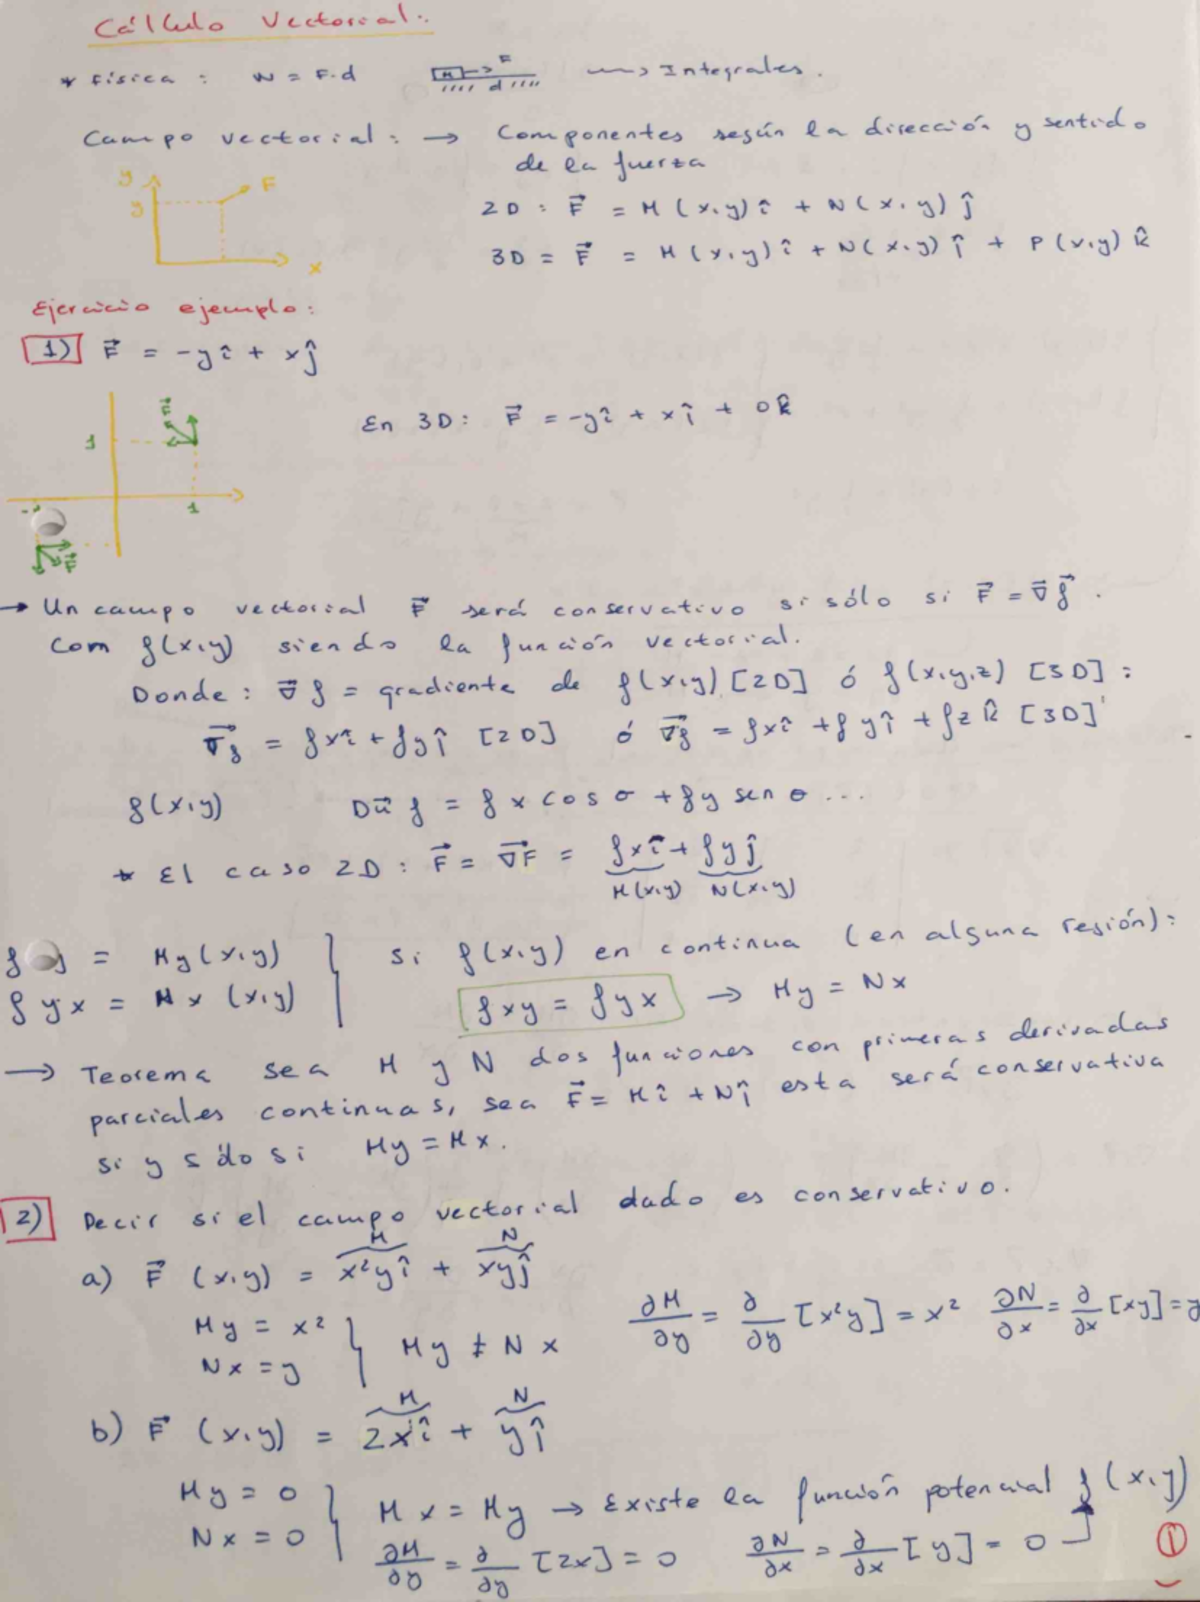 Cálculo Vectorial:
* Física : W = F·d M → F d ~~> Integrales.
Campo vectorial: → Componentes según la dirección y sentido
de la fuerza
y
y F
x
2D : F⃗ = M(x,y) î + N(x,y) ĵ
3D = F⃗ = M(x,y) î + N(x,y) ĵ + P(x,y) k̂
Ejercicio ejemplo:
1) F⃗ = -yî + xĵ
En 3D: F⃗ = -yî + xĵ + 0k̂
F⃗
1
1
F⃗
→ Un campo vectorial F⃗ será conservativo si sólo si F⃗ = ∇⃗f⃗.
Com f(x,y) siendo la función vectorial.
Donde: ∇⃗f = gradiente de f(x,y) [2D] ó f(x,y,z) [3D] :
∇⃗f = fxî + fyĵ [2D] ó ∇⃗f = fxî + fyĵ + fz k̂ [3D]
f(x,y) Du⃗ f = fx cos σ + fy sen θ ...
* El caso 2D : F⃗ = ∇⃗F = fxî + fyĵ
M(x,y) N(x,y)
f y = My(x,y)
fyx = Nx (x,y)
si f(x,y) en continua (en alguna región):
fxy = fyx → My = Nx
→ Teorema sea M y N dos funciones con primeras derivadas
parciales continuas, sea F⃗ = Mî + Nĵ esta será conservativa
si y sólo si My = Mx.
2) Decir si el campo vectorial dado es conservativo.
M N
a) F⃗ (x,y) = x²yî + xyĵ
My = x²
Nx = y
My ≠ Nx
∂M/∂y = ∂/∂y [x²y] = x² ∂N/∂x = ∂/∂x [xy] = y
M N
b) F⃗ (x,y) = 2xî + yĵ
My = 0
Nx = 0
Mx = My → Existe la función potencial f(x,y)
∂M/∂y = ∂/∂y [2x] = 0 ∂N/∂x = ∂/∂x [y] = 0
1